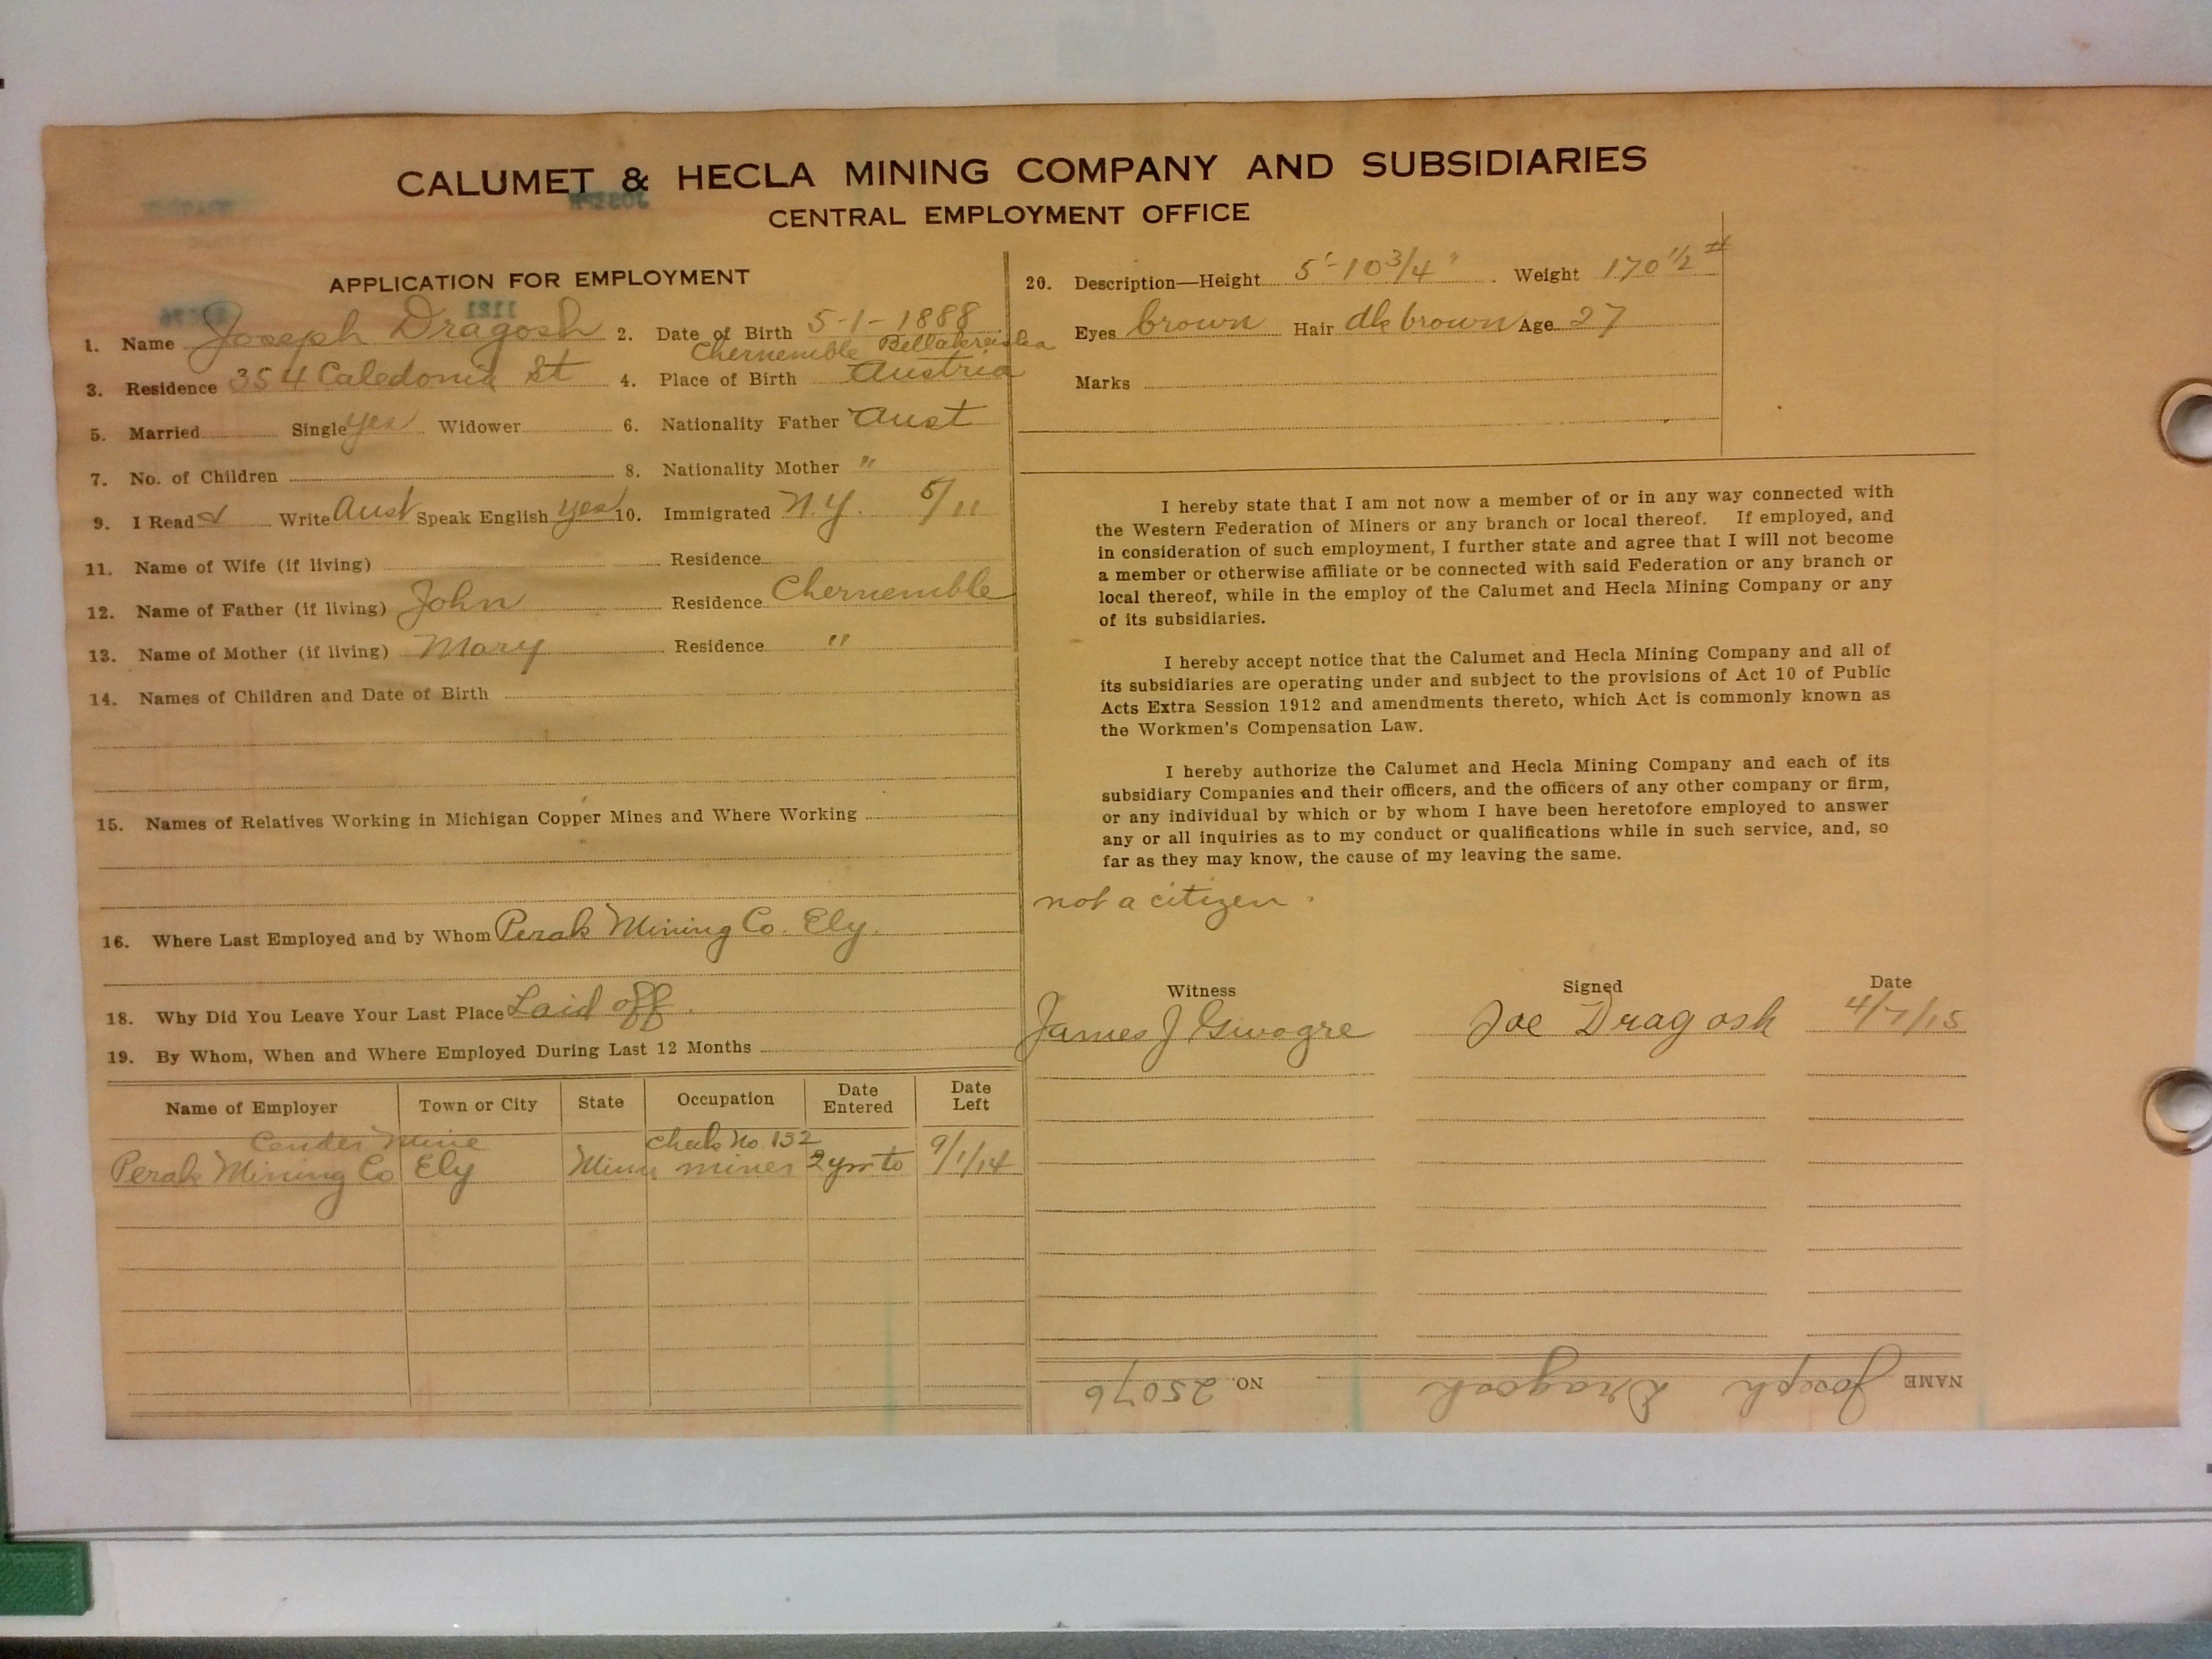 CALUMET & HECLA MINING COMPANY AND SUBSIDIARIES
CENTRAL EMPLOYMENT OFFICE
APPLICATION FOR EMPLOYMENT
1. Name Joseph Dragosh 2. Date of Birth 5-1-1888
Chernemble
3. Residence 354 Caledonia St 4. Place of Birth Austria
5. Married Single yes Widower 6. Nationality Father Aust
7. No. of Children 8. Nationality Mother "
9. I Read & Write Aust Speak English yes 10. Immigrated N.Y. 5/11
11. Name of Wife (if living) Residence
12. Name of Father (if living) John Residence Chernemble
13. Name of Mother (if living) Mary Residence "
14. Names of Children and Date of Birth
15. Names of Relatives Working in Michigan Copper Mines and Where Working
16. Where Last Employed and by Whom Perak Mining Co. Ely.
18. Why Did You Leave Your Last Place Laid off.
19. By Whom, When and Where Employed During Last 12 Months
Name of Employer Town or City State Occupation Date Entered Date Left
Mine Check No. 132
Perak Mining Co Ely Minn miner 2 yrs to 9/1/14
20. Description—Height 5'-10 3/4" Weight 170 1/2 #
Eyes brown Hair dk brown Age 27
Marks
I hereby state that I am not now a member of or in any way connected with
the Western Federation of Miners or any branch or local thereof. If employed, and
in consideration of such employment, I further state and agree that I will not become
a member or otherwise affiliate or be connected with said Federation or any branch or
local thereof, while in the employ of the Calumet and Hecla Mining Company or any
of its subsidiaries.
I hereby accept notice that the Calumet and Hecla Mining Company and all of
its subsidiaries are operating under and subject to the provisions of Act 10 of Public
Acts Extra Session 1912 and amendments thereto, which Act is commonly known as
the Workmen's Compensation Law.
I hereby authorize the Calumet and Hecla Mining Company and each of its
subsidiary Companies and their officers, and the officers of any other company or firm,
or any individual by which or by whom I have been heretofore employed to answer
any or all inquiries as to my conduct or qualifications while in such service, and, so
far as they may know, the cause of my leaving the same.
not a citizen.
Witness Signed Date
James J Joe Dragosh 4/7/15
NAME Joseph Dragosh NO. 25076